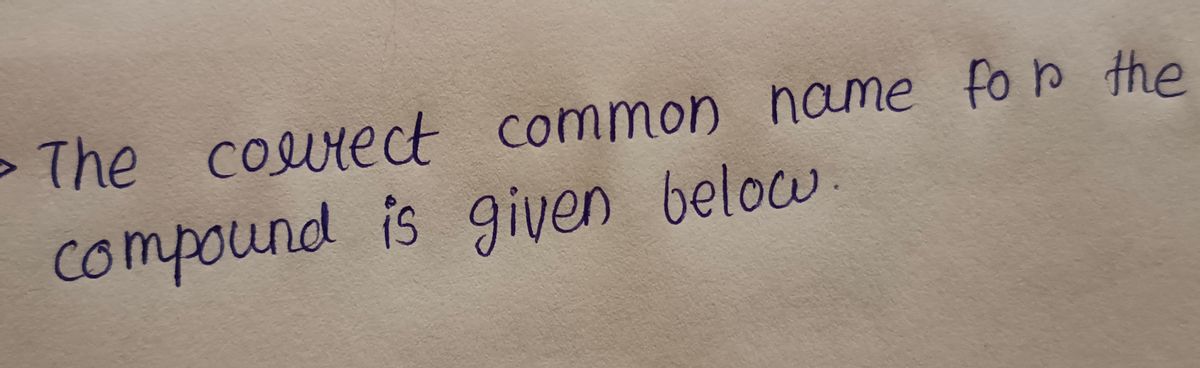 The correct common name for the
compound is given below.